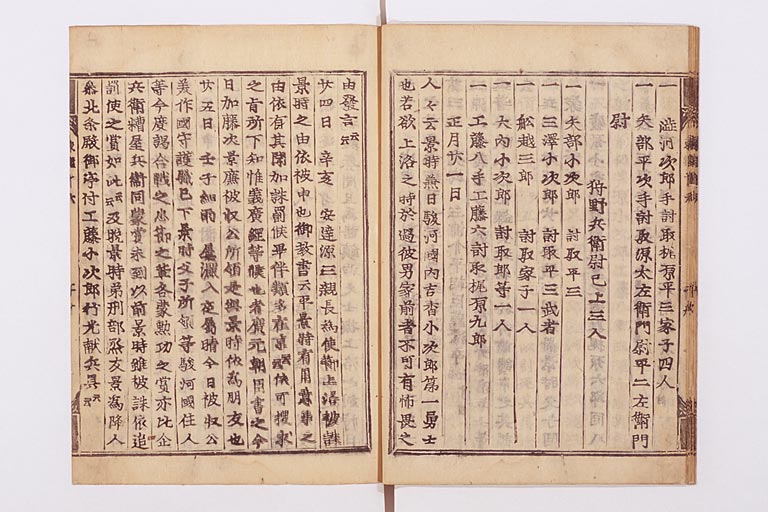 一 澁河次郎手討取梶原平三家子四人
一 矢部平次手討取源太左衛門尉平二左衛門
尉
狩野兵衛尉已上三人
一 矢部小次郎 討取平三
一 三澤小次郎 討取平三武者
一 船越三郎 討取家子一人
一 大内小次郎 討取郎等一人
一 工藤八手工藤六討取梶原九郎
正月廿一日
人々云景時兼日駿河國内吉香小次郎第一勇士
也若欲上洛之時於過彼男家前者不可有怖畏之
由發言云云
廿四日 辛亥 安達源三親長為使節上洛被誅
景時之由依被申也御教書云平景時有用意事之
由依有其聞加誅罰候畢伴類多在京云云依可搜求
之旨所下知惟義廣經等候也者廣元朝臣書之今
日加藤次景廉被収公所領是與景時依為朋友也
廿五日 壬子 細雨 入夜屬晴今日被収公
美作國守護職已下景時父子所領等駿河國住人
等今度謁合戰之小節之輩各蒙勲功之賞亦比企
兵衛糟屋兵衛同蒙賞来到以前景時雖被誅依追
討使之賞如此云云及晩景時弟刑部丞友景為降人
参北条殿御宇付工藤小次郎行光献兵具云云